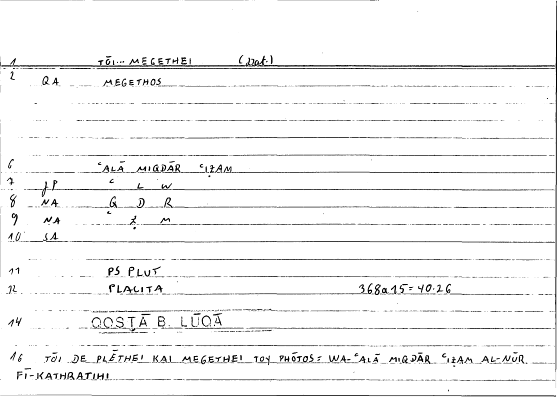 1 TŌI... MEGETHEI (Dat.)
2 QA MEGETHOS
6 ʿALĀ MIQDĀR ʿIẒAM
7 JP ʿ L W
8 NA Q D R
9 NA ʿ Ẓ M
10 SA
11 PS PLUT
12 PLACITA 368a15=40.26
14 QOSṬĀ B. LŪQĀ
16 TŌI DE PLĒTHEI KAI MEGETHEI TOY PHŌTOS = WA-ʿALĀ MIQDĀR ʿIẒAM AL-NŪR
FĪ-KATHRATIHI